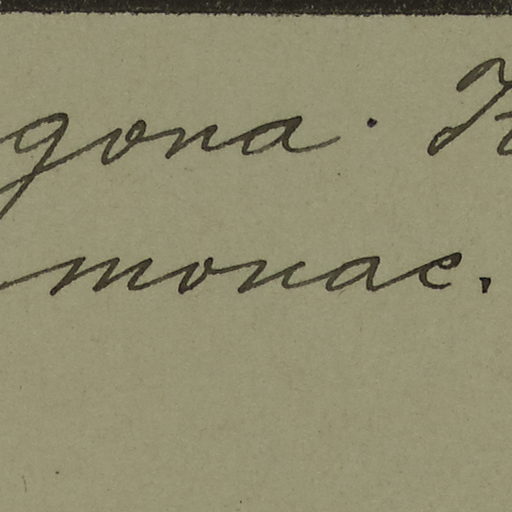 gona.
monac.